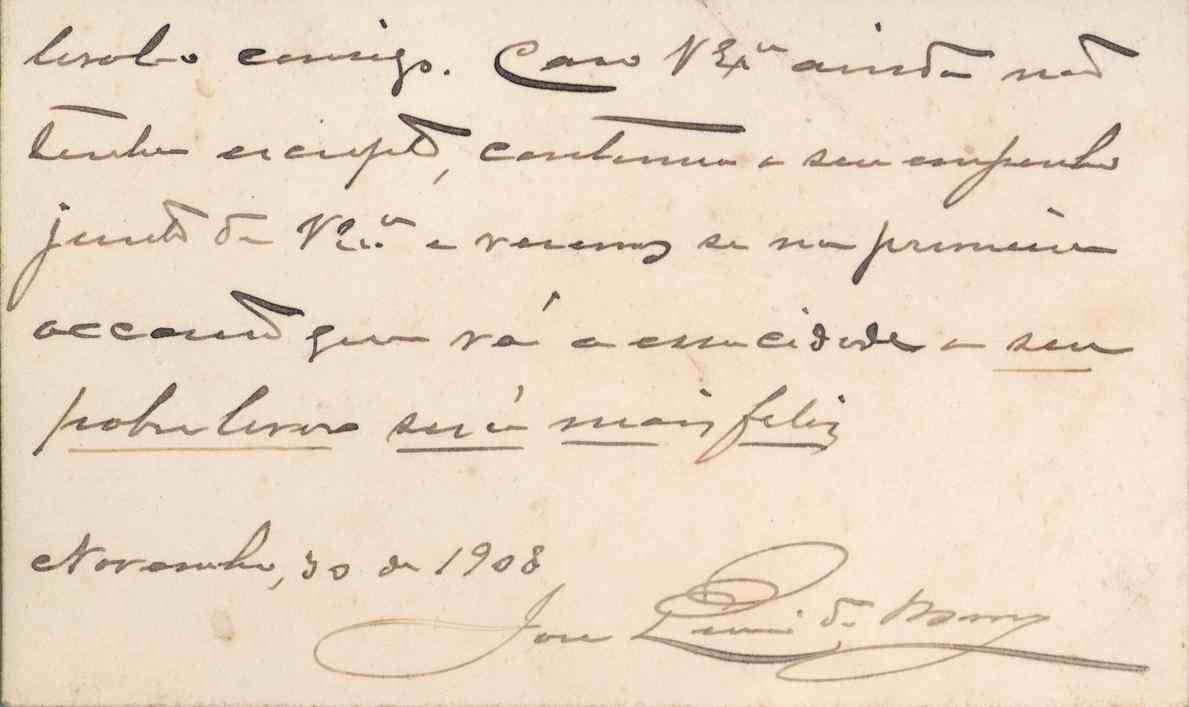 leval-o comigo. Caso V Exª ainda não
tenha escripto, continua o seu empenho
junto de V Exª e veremos se na primeira
que vá a essa cidade o seu
pobre livro será mais feliz
Novembro, 30 de 1908
José de Barros